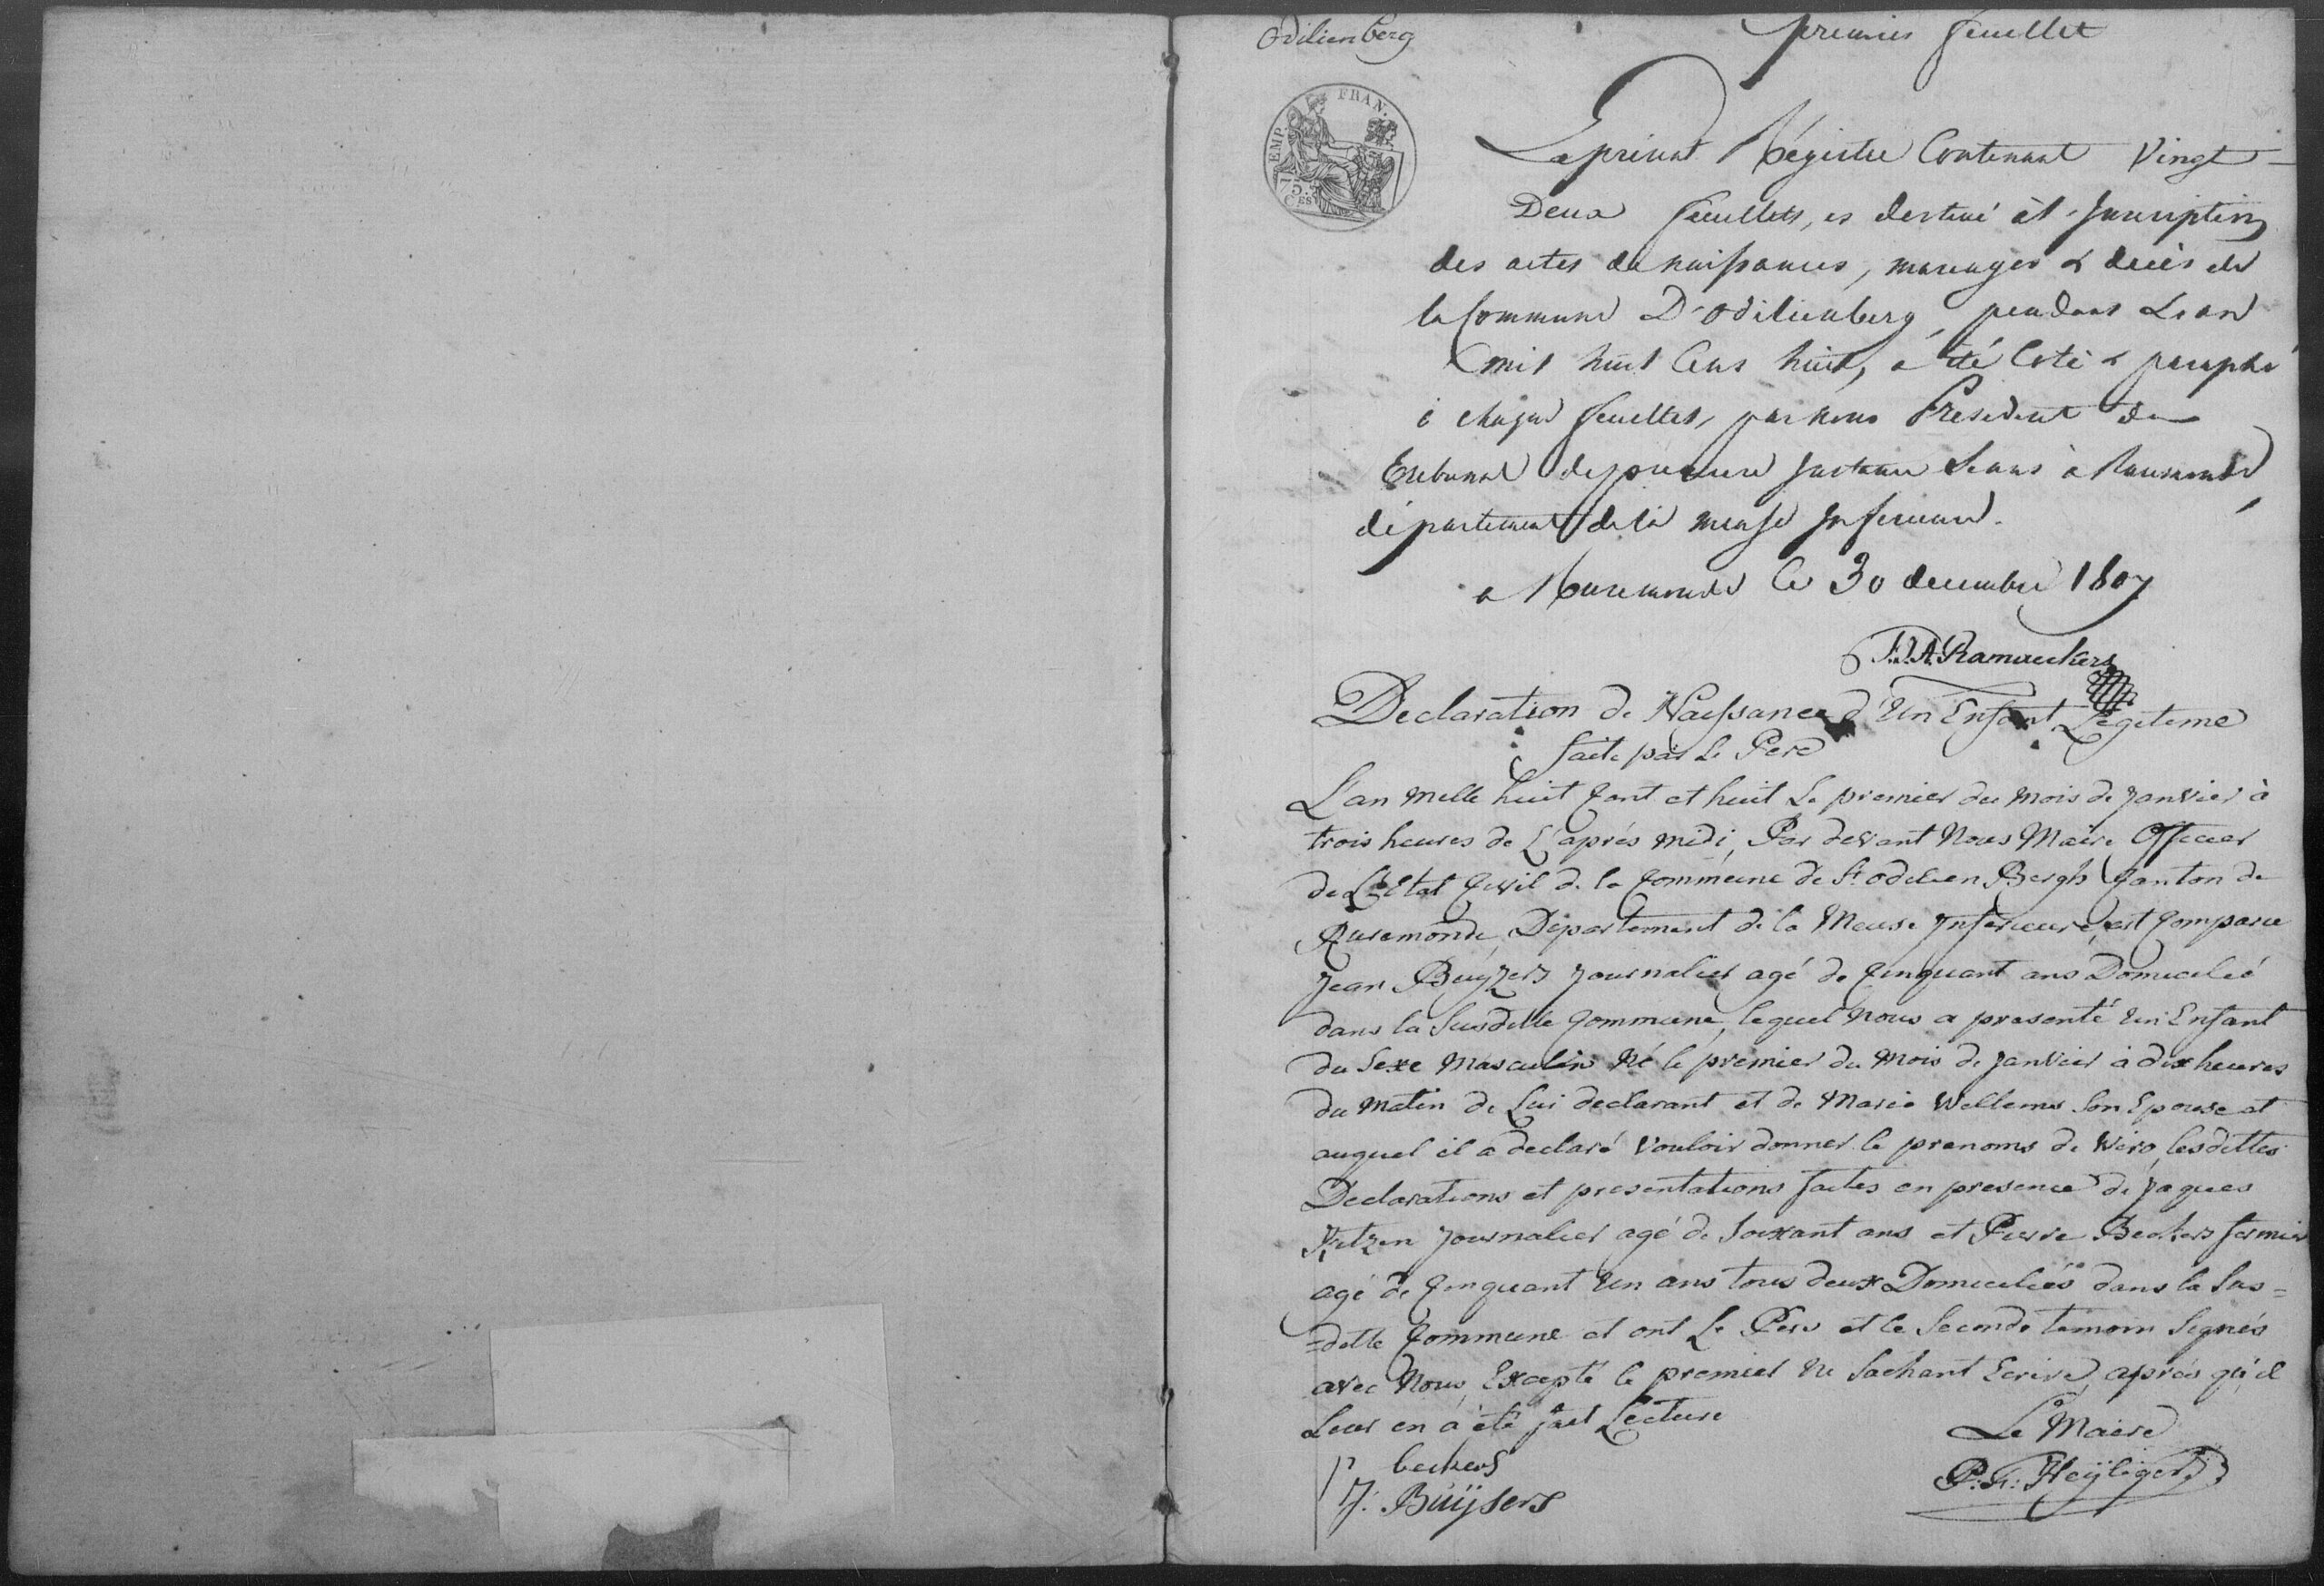 Odilienberg
premier feuillet
EMP. FRAN.
75
CES
Le présent Régistre Contenant Vingt
Deux feuillets, es destiné à l'Inscription
des actes de naissances, mariages & décès de
la Commune D'Odilienberg, pendant L'an
mil huit Cens huit, a été Coté & paraphé
à chaque feuillet, par nous President du
Tribunal de premiere Instance Séant à Ruremonde
département de la meuse Inferieure.
a Ruremonde le 30 decembre 1807
Ramaeckers
Declaration de Naissance d'Un Enfant Legitime
faite par Le Pere
L'an Mille huit Cent et huit Le premier du Mois de Janvier à
trois heures de L'après Midi, Par devant Nous Maire Officier
de L'Etat Civil de la Commune de St. Odilien Bergh Canton de
Ruremonde, Département de la Meuse Inferieure, est Comparu
Jean Buÿzers Journalier agé de Cinquant ans Domicilié
dans la Susditte Commune, lequel Nous a presenté Un Enfant
du Sexe Masculin Né le premier du Mois de Janvier à dix heures
du Matin de Lui declarant et de Marie Willems Son Epouse et
auquel il a declaré Vouloir donner le prenoms de Wiro, lesdittes
Declarations et presentations faites en presence de Jaques
agé de Soixant ans et Pierre Beckers fermier
Journalier
agé de Cinquant Un ans tous deux Domiciliés dans la Sus=
=ditte Commune et ont Le Pere et le Seconde temoin Signés
avec Nous, Excepté le premier Ne Sachant Ecrire, après qu'il
Leur en a été fait Lecture
Le Maire
p beckers
J. Buÿsers
Heÿligers